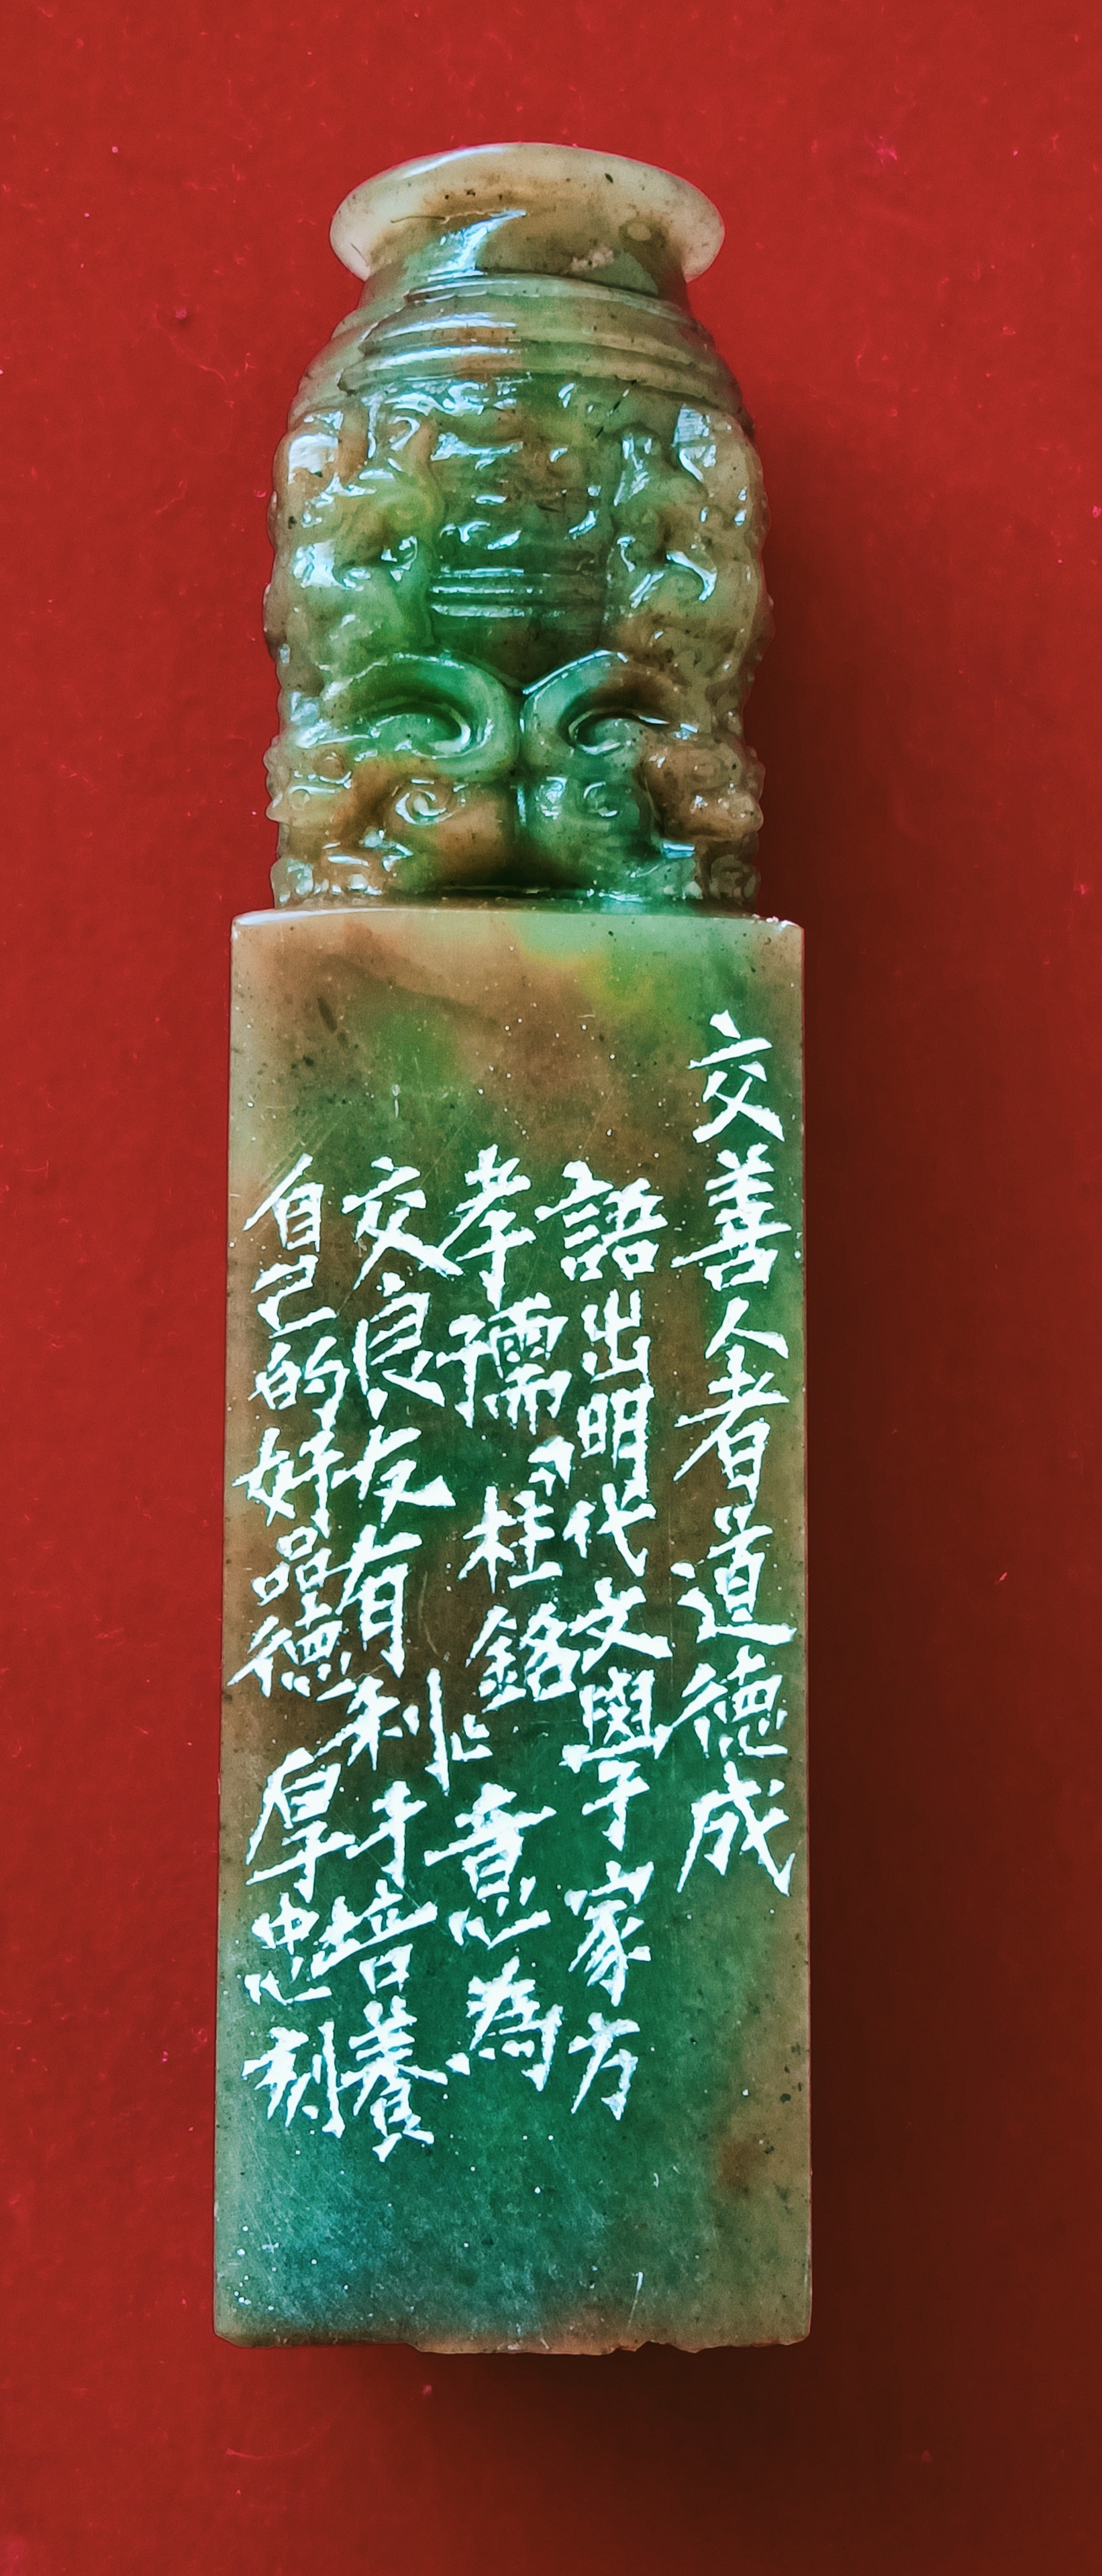 交善人者道德成
語出明代文學家方
孝孺柱銘意為
交良友有利于培養
自己的好品德 厚忠刻